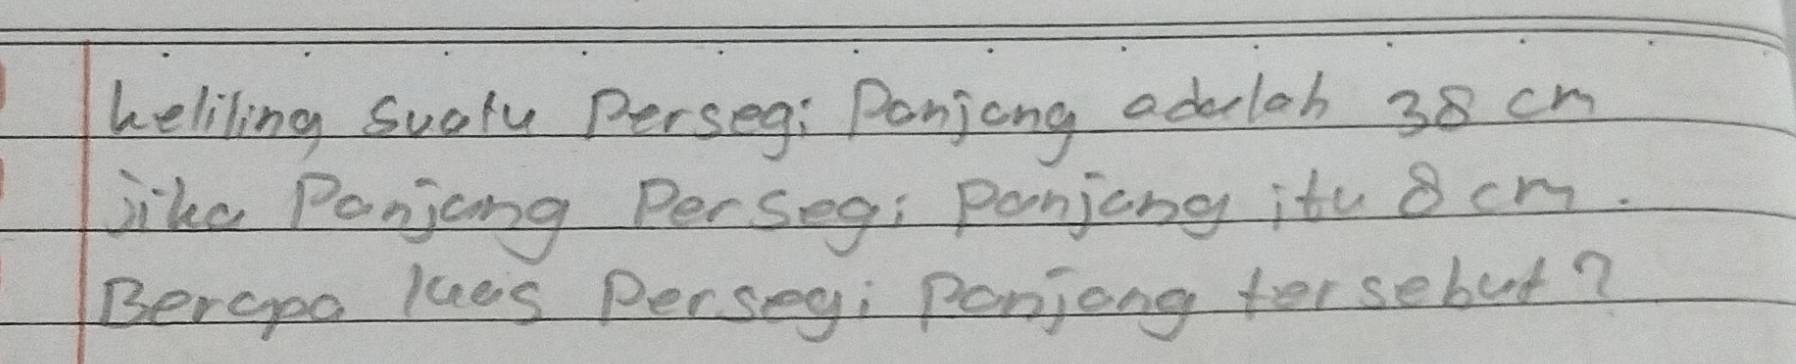 keliling suatu Persegi Panjang adalah 38 cm
jika Panjang Persegi panjang itu 8 cm.
Berapa luas Persegi panjang tersebut?